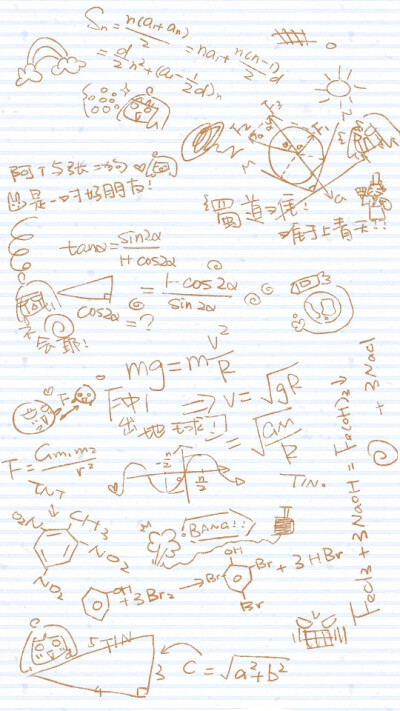 Sₙ = n(a₁+aₙ)/2 = na₁ + n(n-1)/2 d
= d/2 n² + (a₁ - 1/2 d)n
阿T与张二狗
是一对好朋友!
蜀道难
难于上青天!!
tanα = sin2α/1+cos2α
= 1-cos2α/sin2α
cos2α = ?
不会耶!
mg = m v²/R
⇒ V = √gR
= √GM/R
F
F = Gm₁m₂/r²
-π/2
π/2
TIN.
TNT
CH3
O2N
NO2
NO2
BANG!!
OH
+ 3Br2 →
OH
Br
Br
Br
+ 3HBr
FeCl3 + 3NaOH = Fe(OH)3 ↓ + 3NaCl
5
TIN
3
4
C = √a²+b²